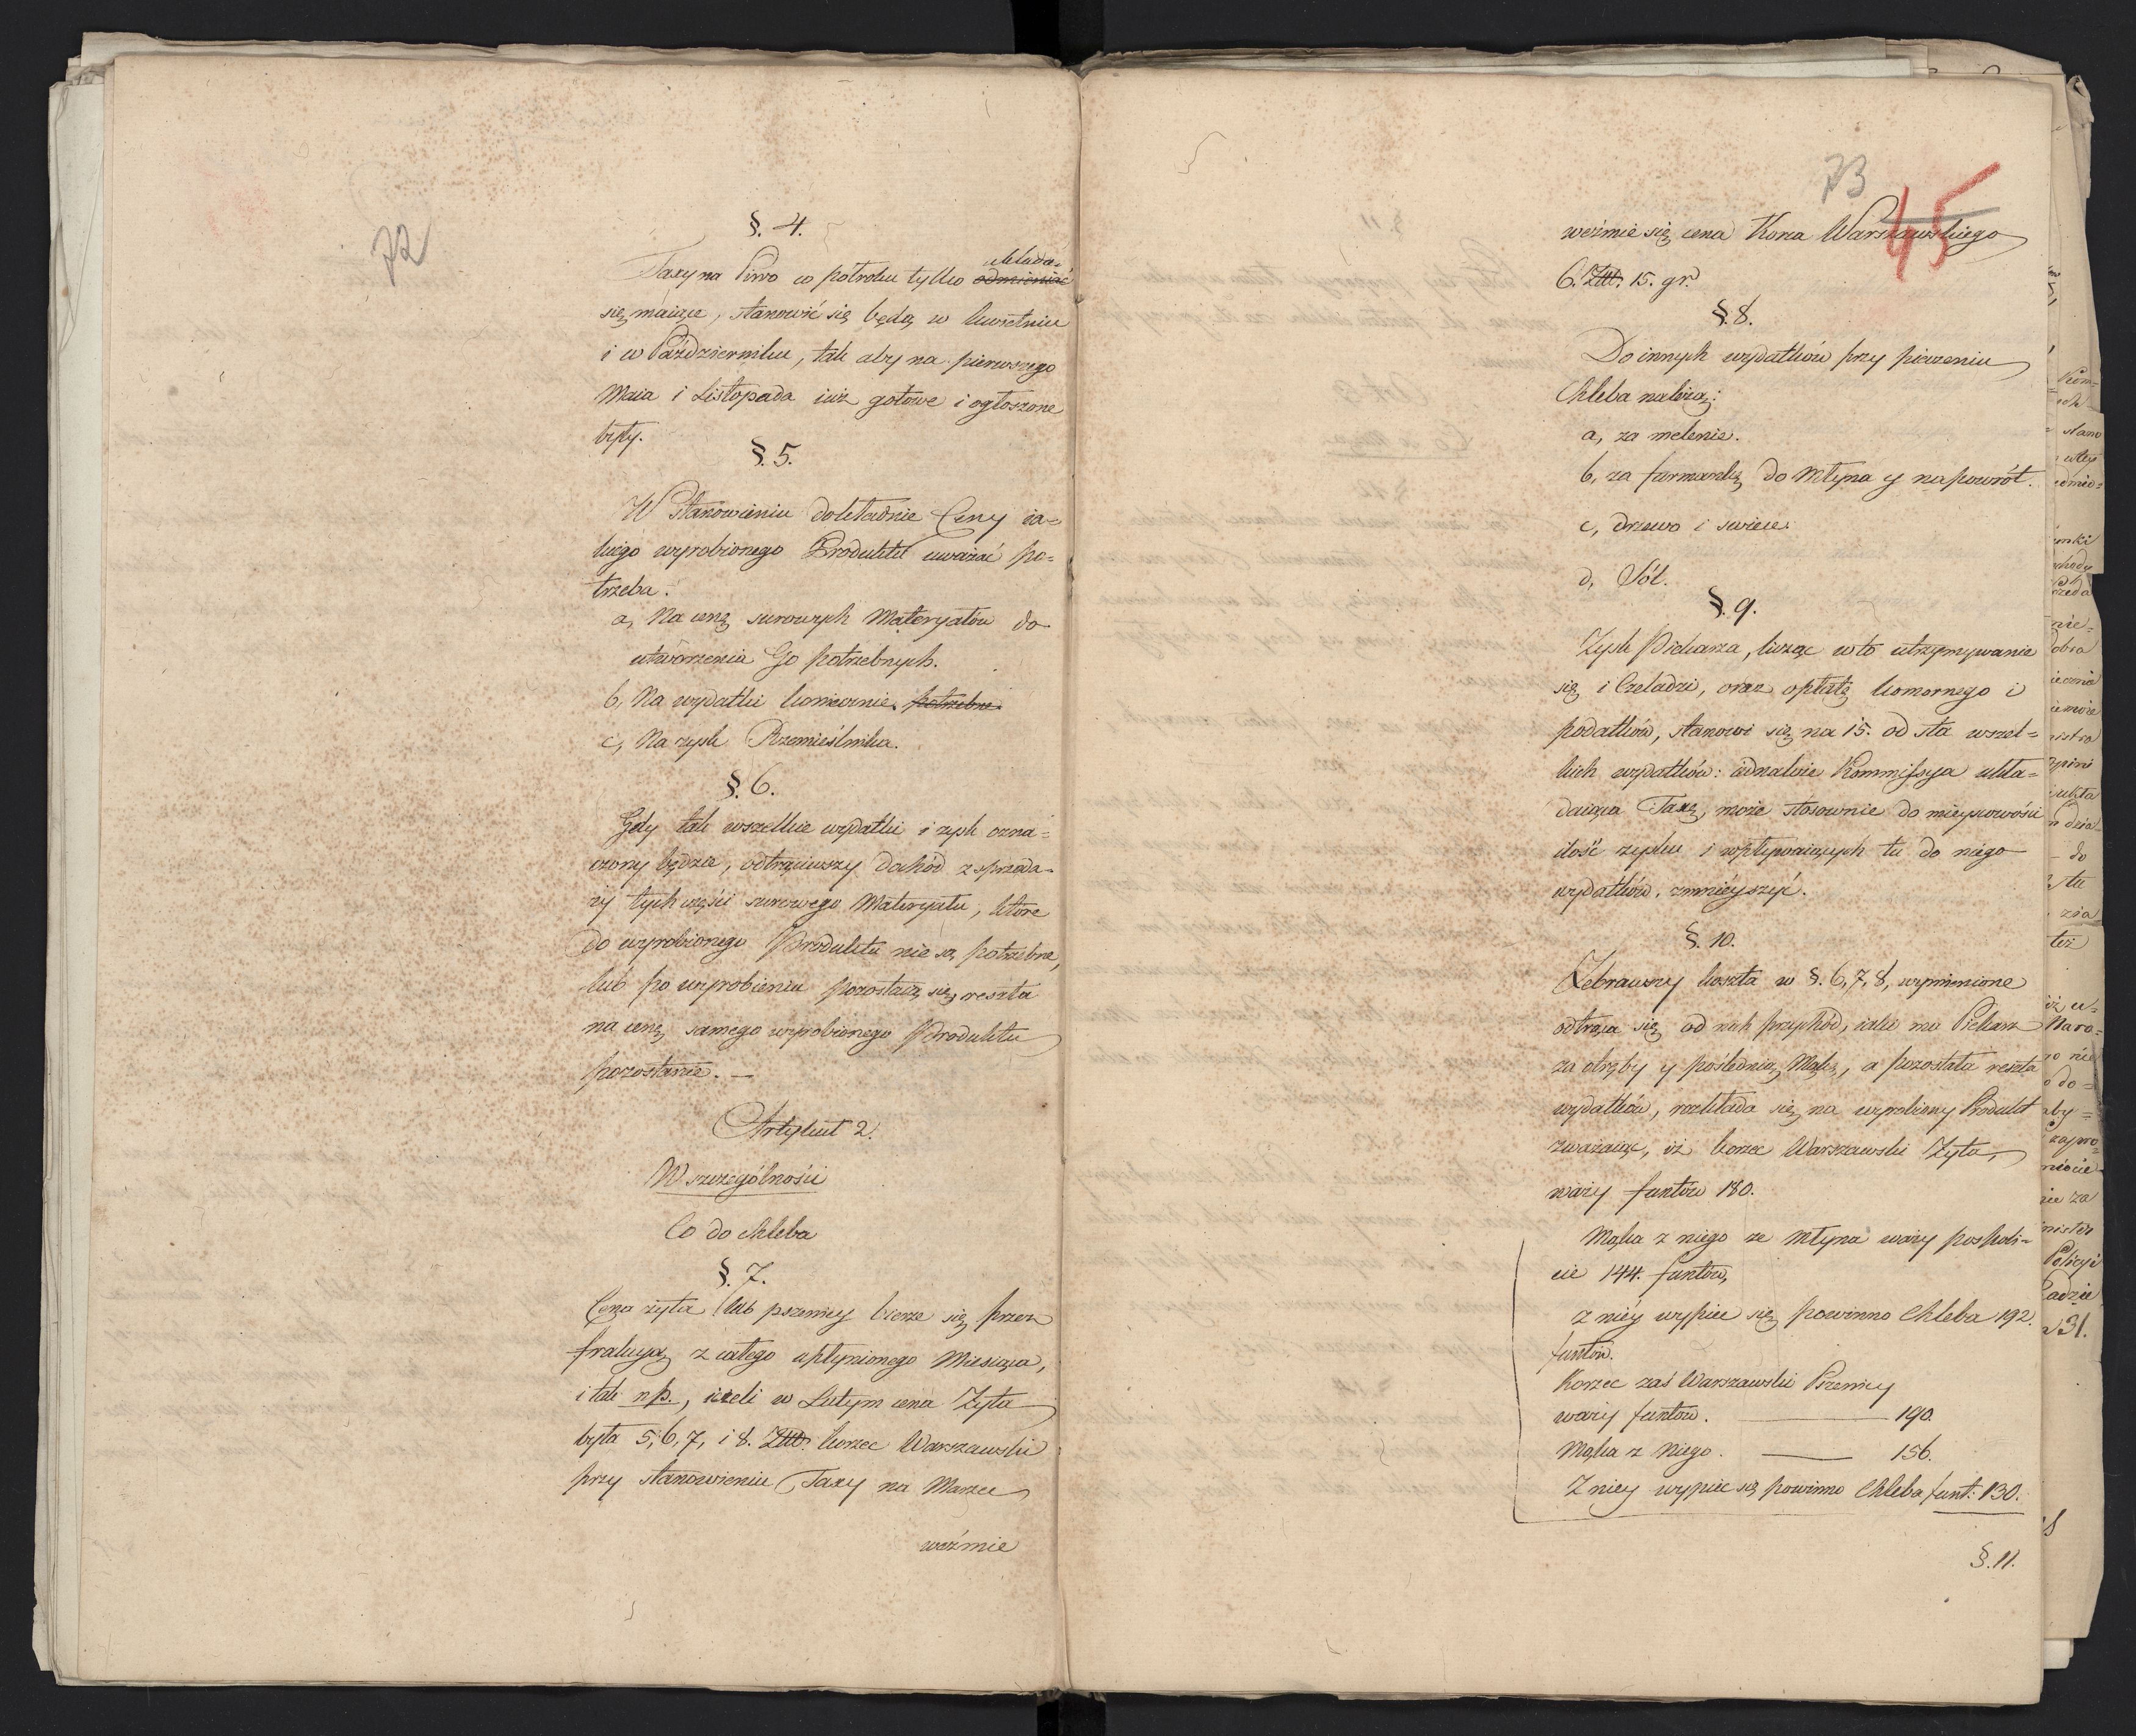 72
§. 4.
układa=
Taxy na Piwo co pół roku tylko odmieniać
się maiące, stanowić się będą w Kwietniu
i w Październiku, tak aby na pierwszego
Maia i Listopada iuż gotowe i ogłoszone
były.
§. 5.
W Stanowieniu dokładnie Ceny ia=
kiego wyrobionego Produktu uważać po=
trzeba:
a, Na cenę surowych Materyałów do
utworzenia Go potrzebnych.
b, Na wydatki koniecznie potrzebne.
c, Na zysk Rzemieślnika.
§. 6.
Gdy tak wszelkie wydatki i zysk ozna=
czony będzie, odtrąciwszy dochód z sprzeda=
ży tych części surowego Materyału, które
do wyrobionego Produktu nie są potrzebne,
lub po wyrobieniu pozostaią się, reszta
na cenę samego wyrobionego Produktu
pozostanie. —
Artykuł 2.
W szczególności
Co do chleba
§. 7.
Cena żyta lub pszenicy bierze się przez
frakcyą z całego upłynionego Miesiąca,
i tak np., ieżeli w Lutym cena Żyta
była 5, 6, 7, i 8. Złł. korzec Warszawski
przy stanowieniu Taxy na Marzec
weźmie
73
45
weźmie się cena Korca Warszawskiego
6. Złł. 15. gr.
§. 8.
Do innych wydatków przy pieczeniu
Chleba należą:
a, za melenie.
b, za furmankę do Młyna y napowrót.
c, drzewo i świece.
d, Sól.
§. 9.
Zysk Piekarza, licząc w to utrzymywanie
się i Czeladzi, oraz opłatę komornego i
podatków, stanowi się na 15. od sta wszel=
kich wydatków: iednakże Kommissya ukła=
daiąca Taxę, może stosownie do mieyscowości
ilość zysku i wpływaiących tu do niego
wydatków, zmnieyszyć.
§. 10.
Zebrawszy koszta w §. 6, 7, 8, wymienione
odtrąca się od nich przychód, iaki ma Piekarz
za otręby y poślednią Mąkę, a pozostała reszta
wydatków, rozkłada się na wyrobiony Produkt
zważaiąc, iż korzec Warszawski Żyta,
waży funtów 180.
Mąka z niego ze Młyna waży pospoli=
cie 144. funtów,
z niéy wypiec się powinno Chleba 192.
funtów.
Korzec zaś Warszawski Pszenicy
waży funtów. — 190.
Mąka z niego. — 156.
Z niey wypiec się powinno Chleba funt: 130.
§. 11.